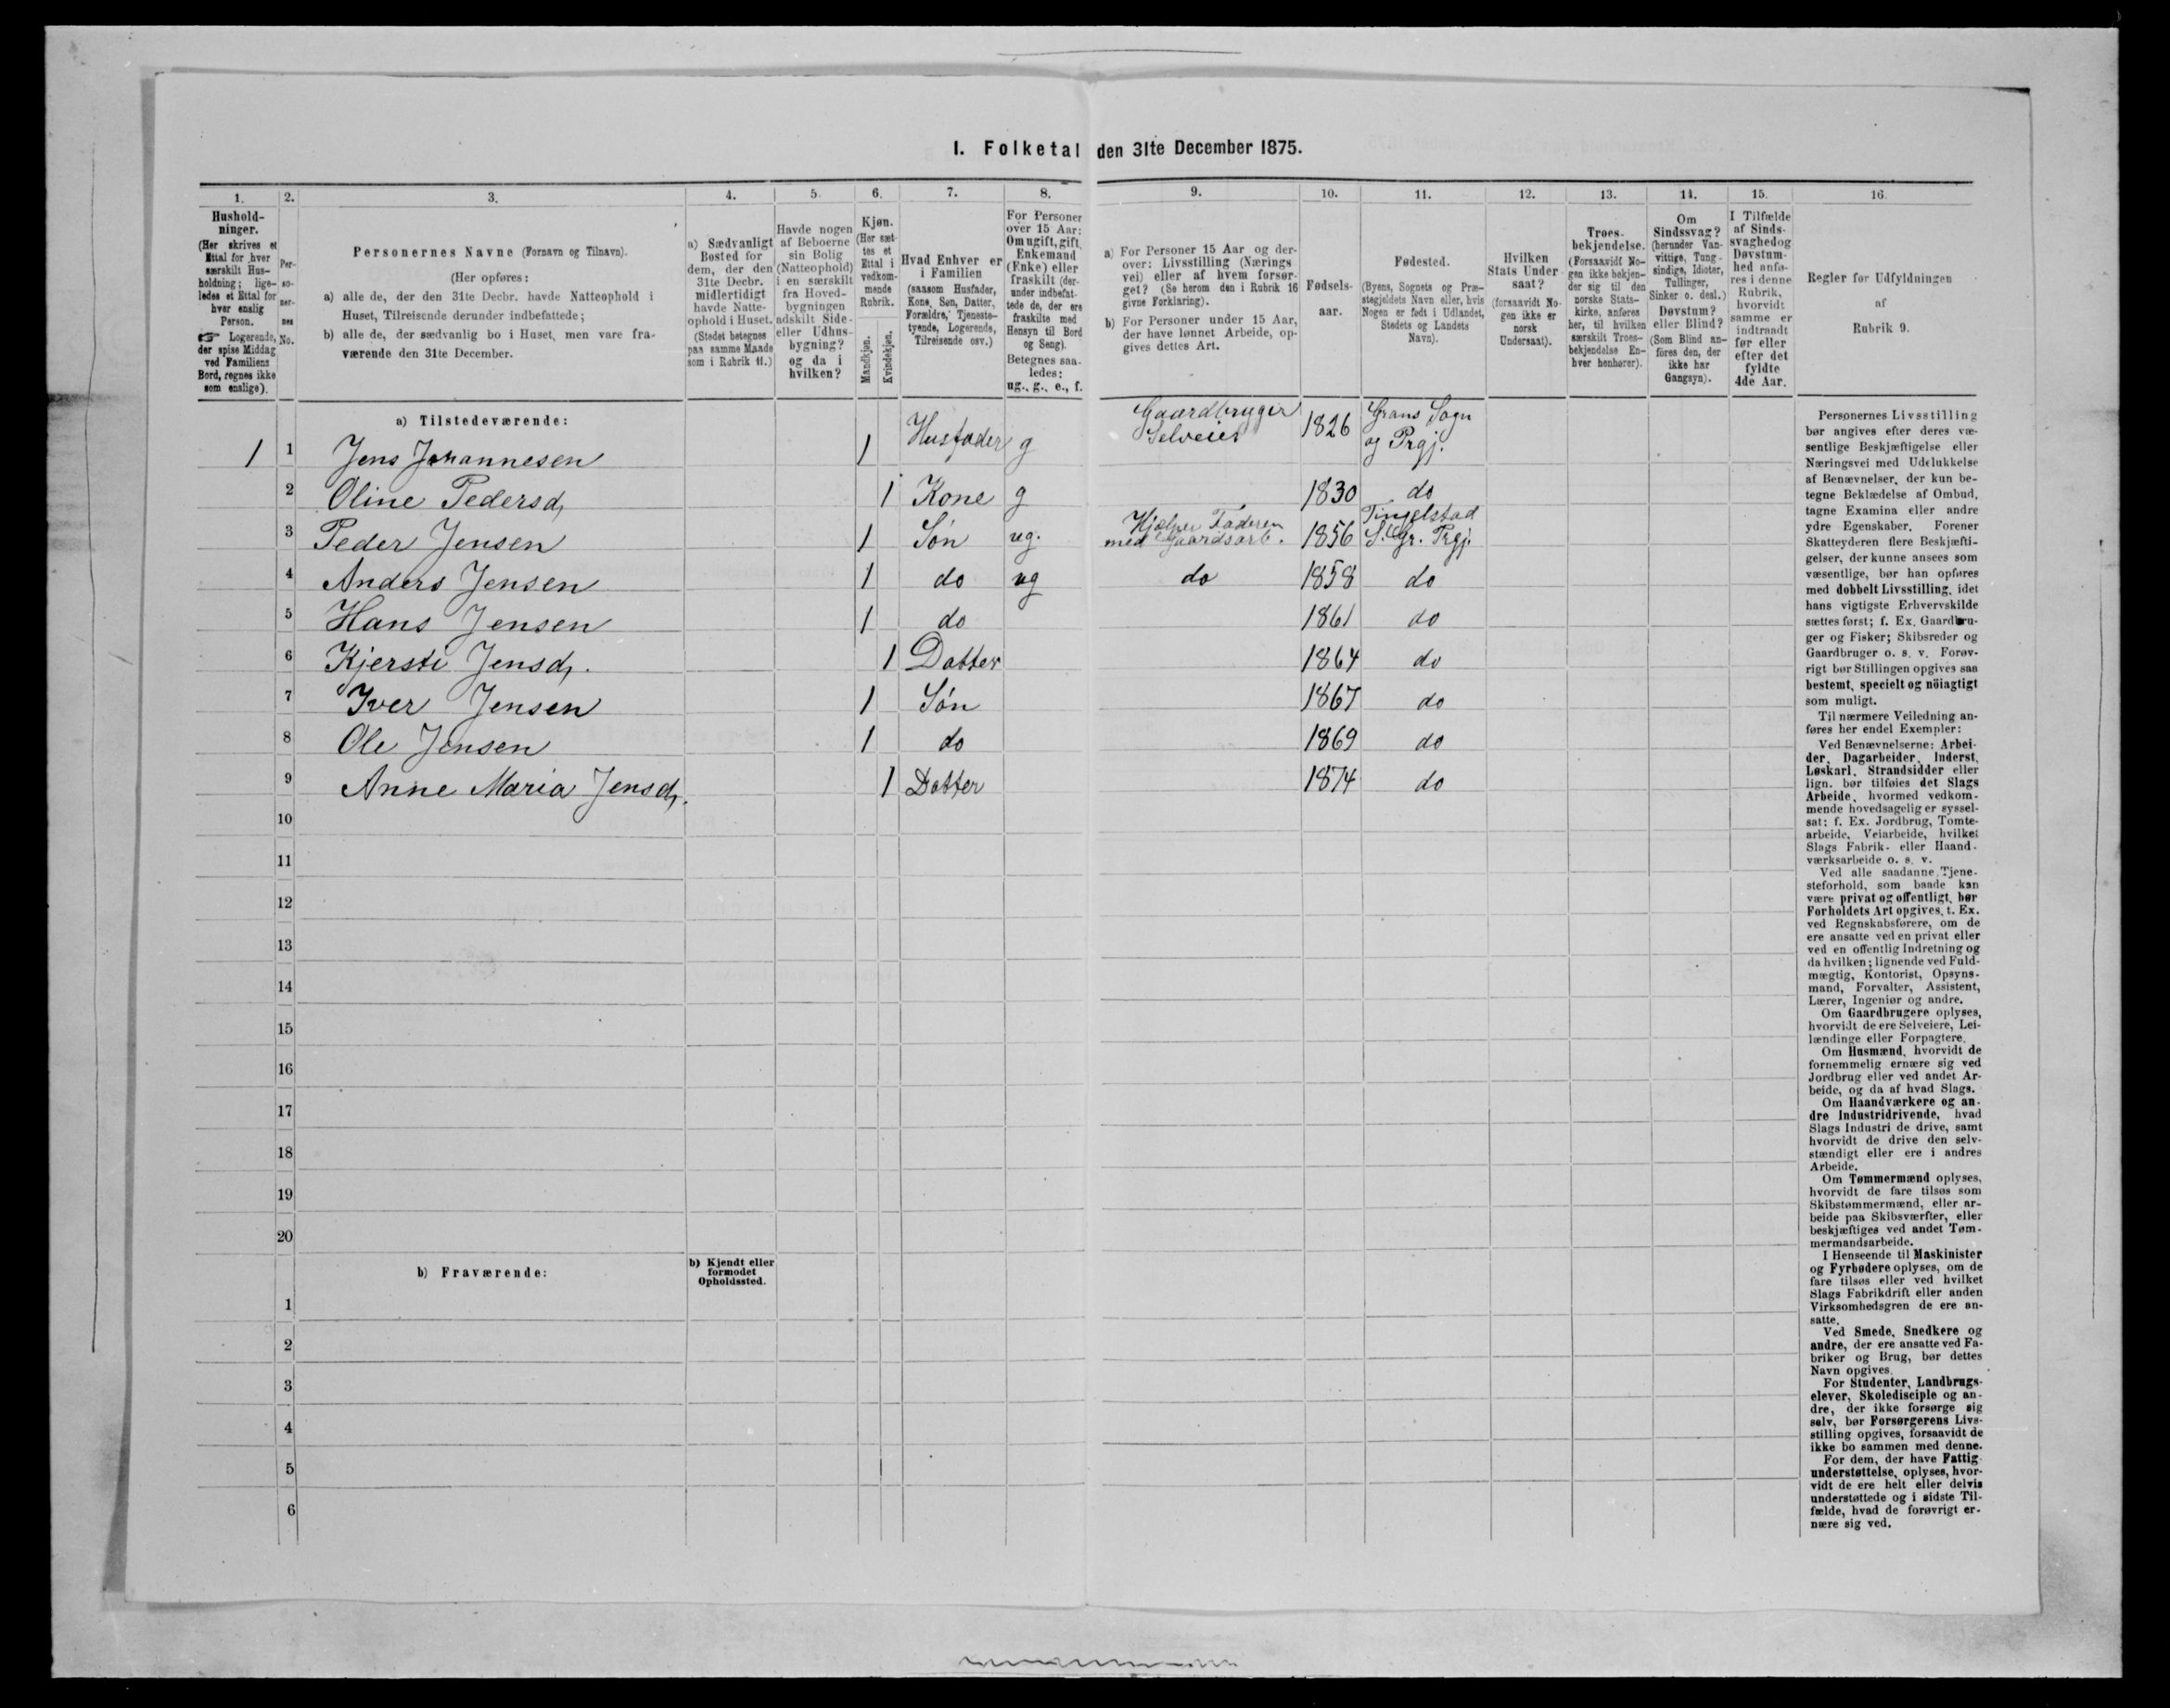 I. Folketal den 31te December 1875.
1. 2. 3. 4. 5. 6. 7. 8. 9. 10. 11. 12. 13. 14. 15. 16.
Hushold-
ninger.
(Her skrives et
Ettal for hver
særskilt Hus-
holdning; lige-
ledes et Ettal for
hver enslig
Person.
☞ Logerende,
der spise Middag
ved Familiens
Bord, regnes ikke
som enslige).
Per-
so-
ner-
nes
No.
Personernes Navne (Fornavn og Tilnavn).
(Her opføres:
a) alle de, der den 31te Decbr. havde Natteophold i
Huset, Tilreisende derunder indbefattede;
b) alle de, der sædvanlig bo i Huset, men vare fra-
værende den 31te December.
a) Sædvanligt
Bosted for
dem, der den
31te Decbr.
midlertidigt
havde Natte-
ophold i Huset.
(Stedet betegnes
paa samme Maade
som i Rubrik 11.)
Havde nogen
af Beboerne
sin Bolig
(Natteophold)
i en særskilt
fra Hoved-
bygningen
adskilt Side-
eller Udhus-
bygning?
og da i
hvilken?
Kjøn.
(Her sæt-
tes et
Ettal i
vedkom-
mende
Rubrik.
Mandkjøn.
Kvindekjøn.
Hvad Enhver er
i Familien
(saasom Husfader,
Kone, Søn, Datter,
Forældre, Tjeneste-
tyende, Logerende,
Tilreisende osv.)
For Personer
over 15 Aar:
Om ugift, gift,
Enkemand
(Enke) eller
fraskilt (der-
under indbefat-
tede de, der ere
fraskilte med
Hensyn til Bord
og Seng).
Betegnes saa-
ledes:
ug., g., e., f.
a) For Personer 15 Aar og der-
over: Livsstilling (Nærings
vei) eller af hvem forsør-
get? (Se herom den i Rubrik 16
givne Forklaring).
b) For Personer under 15 Aar,
der have lønnet Arbeide, op-
gives dettes Art.
Fødsels-
aar.
Fødested.
(Byens, Sognets og Præ-
stegjeldets Navn eller, hvis
Nogen er født i Udlandet,
Stedets og Landets
Navn).
Hvilken
Stats Under
saat?
(forsaavidt No-
gen ikke er
norsk
Undersaat).
Troes-
bekjendelse.
(Forsaavidt No-
gen ikke bekjen-
der sig til den
norske Stats-
kirke, anføres
her, til hvilken
særskilt Troes-
bekjendelse En-
hver henhører).
Om
Sindssvag?
(herunder Van-
vittige, Tung-
sindige, Idioter,
Tullinger,
Sinker o. desl.)
Døvstum?
eller Blind?
(Som Blind an-
føres den, der
ikke har
Gangsyn).
I Tilfælde
af Sinds-
svaghed og
Døvstum-
hed anfø-
res i denne
Rubrik,
hvorvidt
samme er
indtraadt
før eller
efter det
fyldte
4de Aar.
Regler for Udfyldningen
af
Rubrik 9.
a) Tilstedeværende:
1 1 Jens Johannesen 1 Husfader g Gaardbruger Selveier 1826 Grans Sogn og Prgj.
2 Oline Pedersd, 1 Kone g 1830 do
3 Peder Jensen 1 Søn ug. Hjælper Faderen med Gaardsarb. 1856 Tingelstad S. Gr. Prgj.
4 Anders Jensen 1 do ug do 1858 do
5 Hans Jensen 1 do 1861 do
6 Kjersti Jensd,. 1 Datter 1864 do
7 Iver Jensen 1 Søn 1867 do
8 Ole Jensen 1 do 1869 do
9 Anne Maria Jensd,. 1 Datter 1874 do
10
11
12
13
14
15
16
17
18
19
20
b) Fraværende:
b) Kjendt eller
formodet
Opholdssted.
1
2
3
4
5
6
Personernes Livsstilling
bør angives efter deres væ-
sentlige Beskjæftigelse eller
Næringsvei med Udelukkelse
af Benævnelser, der kun be-
tegne Beklædelse af Ombud,
tagne Examina eller andre
ydre Egenskaber. Forener
Skatteyderen flere Beskjæfti-
gelser, der kunne ansees som
væsentlige, bør han opføres
med dobbelt Livsstilling, idet
hans vigtigste Erhvervskilde
sættes først; f. Ex. Gaardbru-
ger og Fisker; Skibsreder og
Gaardbruger o. s. v. Forøv-
rigt bør Stillingen opgives saa
bestemt, specielt og nöiagtigt
som muligt.
Til nærmere Veiledning an-
føres her endel Exempler:
Ved Benævnelserne: Arbei-
der, Dagarbeider, Inderst,
Løskarl, Strandsidder eller
lign. bør tilføies det Slags
Arbeide, hvormed vedkom-
mende hovedsagelig er syssel-
sat; f. Ex. Jordbrug, Tomte-
arbeide, Veiarbeide, hvilket
Slags Fabrik- eller Haand-
værksarbeide o. s. v.
Ved alle saadanne Tjene-
steforhold, som baade kan
være privat og offentligt, bør
Forholdets Art opgives, t. Ex.
ved Regnskabsførere, om de
ere ansatte ved en privat eller
ved en offentlig Indretning og
da hvilken; lignende ved Fuld-
mægtig, Kontorist, Opsyns-
mand, Forvalter, Assistent,
Lærer, Ingeniør og andre.
Om Gaardbrugere oplyses,
hvorvidt de ere Selveiere, Lei-
lændinge eller Forpagtere.
Om Husmænd, hvorvidt de
fornemmelig ernære sig ved
Jordbrug eller ved andet Ar-
beide, og da af hvad Slags.
Om Haandværkere og an-
dre Industridrivende, hvad
Slags Industri de drive, samt
hvorvidt de drive den selv-
stændigt eller ere i andres
Arbeide.
Om Tømmermænd oplyses,
hvorvidt de fare tilsøs som
Skibstømmermænd, eller ar-
beide paa Skibsværfter, eller
beskjæftiges ved andet Tøm-
mermandsarbeide.
I Henseende til Maskinister
og Fyrbødere oplyses, om de
fare tilsøs eller ved hvilket
Slags Fabrikdrift eller anden
Virksomhedsgren de ere an-
satte.
Ved Smede, Snedkere og
andre, der ere ansatte ved Fa-
briker og Brug, bør dettes
Navn opgives.
For Studenter, Landbrugs-
elever, Skoledisciple og an-
dre, der ikke forsørge sig
selv, bør Forsørgerens Livs-
stilling opgives, forsaavidt de
ikke bo sammen med denne.
For dem, der have Fattig-
understøttelse, oplyses, hvor-
vidt de ere helt eller delvis
understøttede og i sidste Til-
fælde, hvad de forøvrigt er-
nære sig ved.